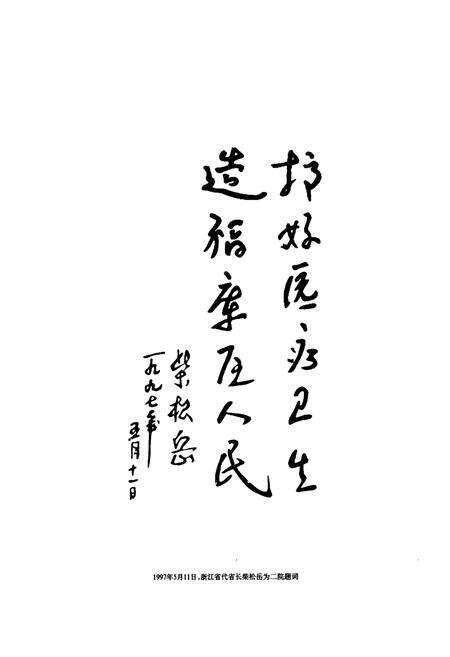 搞好医疗卫生
造福库区人民
柴松岳
一九九七年
五月十一日
1997年5月11日,浙江省代省长柴松岳为二院题词